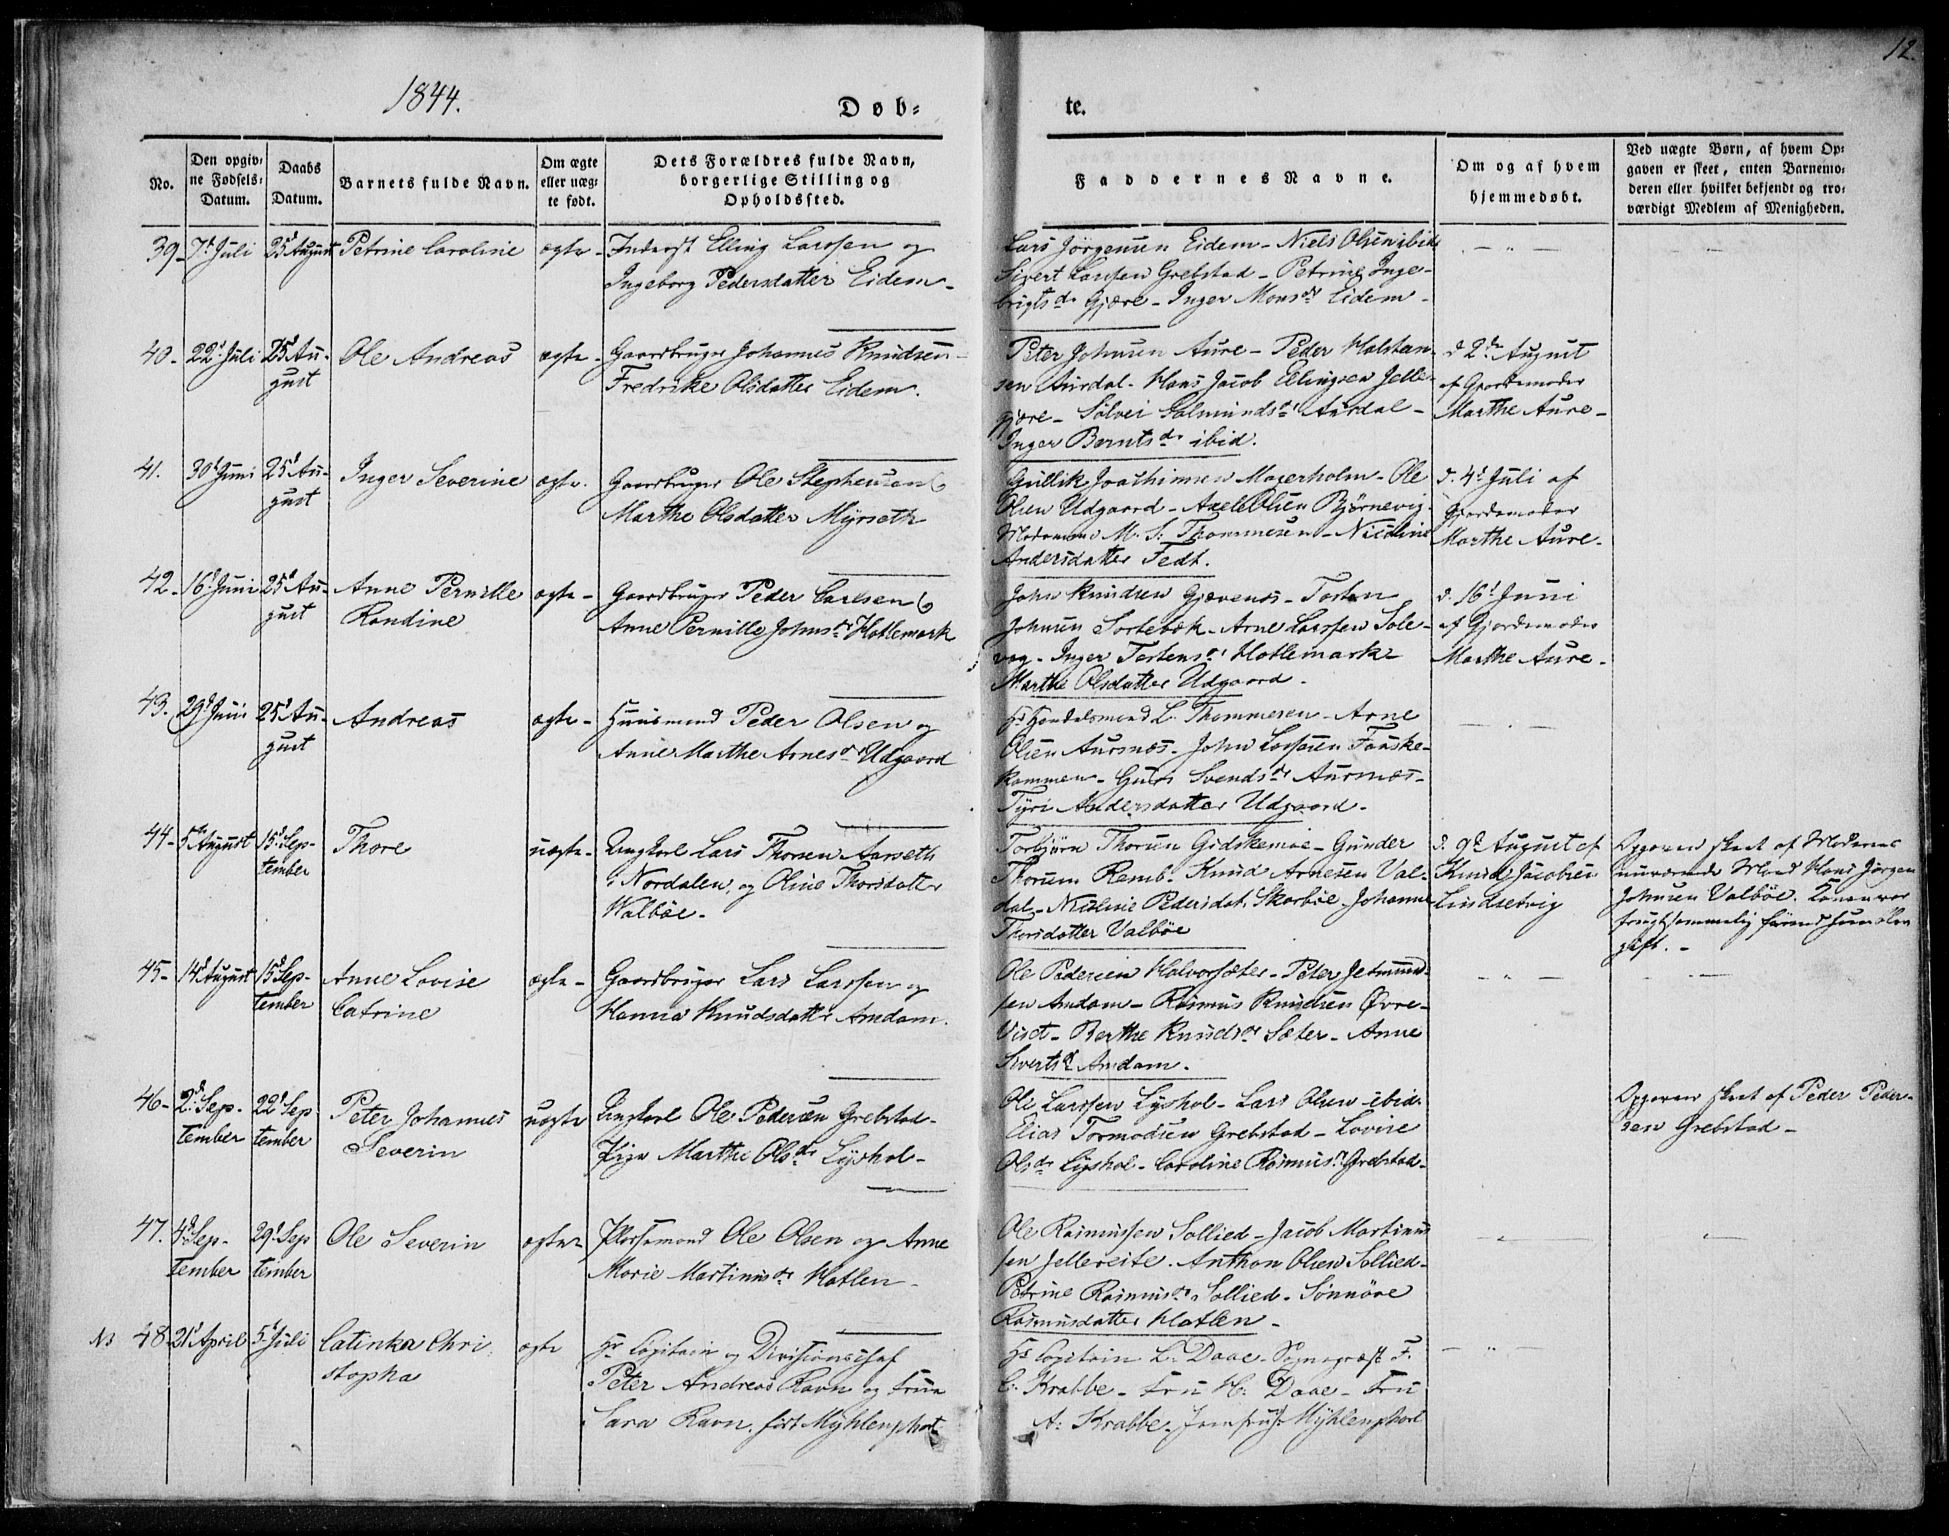 12.
1844.
Døb-
te.
No.
Den opgiv-
ne Fødsels-
Datum.
Daabs
Datum.
Barnets fulde Navn.
Om ægte
eller uæg-
te født.
Dets Forældres fulde Navn,
borgerlige Stilling og
Opholdssted.
Faddernes Navne.
Om og af hvem
hjemmedøbt.
Ved uægte Børn, af hvem Op-
gaven er skeet, enten Barnemo-
deren eller hvilket bekjendt og tro-
værdigt Medlem af Menigheden.
39- 7d Juli 25d August Petrine Caroline ægte- Inderst Elling Larssen og
Ingeborg Pedersdatter Eidem-
Lars Jørgensen Eidem- Niels Olsen ibid
Sivert Larssen Grebstad- Petrine Inge-
brigtsdr Gjære- Inger Monsdr Eidem-
40- 22d Juli 25d Au-
gust
Ole Andreas ægte- Gaardbruger Johannes Knudsen-
Fredrike Olsdatter Eidem.
Peter Johnsen Aure- Peder Halstan-
sen Aurdal- Hans Jacob Ellingsen Jelle-
gjære- Sølvei Galmundsdr Aurdal-
Inger Berntsdr ibid.
d 2den August
af Gjordemoder
Marthe Aure-
41. 30d Juni 25d Au-
gust
Inger Severine ægte. Gaardbruger Ole Stephensen &
Marthe Olsdatter Myrseth
Gullik Joachimsen Magerholm- Ole
Olsen Udgaard- Axel Olsen Bjørnevig-
Madamme M. S. Thommesen- Nicoline
Andersdatter Fedt.
d. 4d Juli af
Gjordemoder
Marthe Aure-
42- 16d Juni 25d Au-
gust
Anne Pernille
Randine
ægte- Gaardbruger Peder Carlsen &
Anne Pernille Johnsdr Hatlemark
John Knudsen Gjævenes- Torsten
Johnsen Sortebæk- Arne Larssen Sole-
vog- Inger Torstensdr Hatlemark-
Marthe Olsdatter Udgaard-
d. 16d Juni
af Gjordemoder
Marthe Aure-
43. 29d Juni 25d Au-
gust
Andreas ægte- Huusmand Peder Olsen og
Anne Marthe Arnesdr Udgaard
Hr Handelsmand L. Thommesen- Arne
Olsen Aursnes- John Larssen Fauske-
kammen- Guri Svendsdr Aursnes-
Tyri Andersdatter Udgaard-
44- 5te August 15d Sep-
tember
Thore uægte- Ungkarl Lars Thorsen Aarseth
i Nordalen og Oline Thorsdatter
Walbøe-
Torbjørn Thorsen Gidskemoe- Gunder
Thorsen Remb- Knud Arnesen Val-
dal- Nicoline Pedersdat. Skarbøe- Johanne
Thorsdatter Valbøe
d. 9de August af
Knud Jacobsen
Lindsetvig
Opgaven skeet af Moderens
nuværende Mand Hans Jørgen
Johnsen Valbøe. Konen var
frugtsommelig førend hun blev
gift.-
45- 14d August 15d Sep-
tember
Anne Lovise
Catrine
ægte- Gaardbruger Lars Larssen og
Hanna Knudsdatter Amdam.
Ole Pedersen Halvorsæter- Peter Jetmund-
sen Amdam- Rasmus Knudsen Øvre-
Vedt- Berthe Knudsdr Sæter- Anne
Sivertsdr Amdam.
46- 2d Sep-
tember
22d Sep
tember
Peter Johannes
Severin
uægte Ungkarl Ole Pedersen Grebstad-
Pige Marthe Olsdr Lyshol-
Ole Larssen Lyshol- Lars Olsen ibid.
Elias Tormodsen Grebstad- Lovise
Olsdr Lyshol- Caroline Rasmusdr Grebstad-
Opgaven skeet af Peder Peder-
sen Grebstad-
47. 4d Sep-
tember
29d Sep
tember
Ole Severin ægte- Pladsemand Ole Olsen og Anne
Marie Martinusdr Hatlen-
Ole Rasmussen Sollied- Jacob Martinus
sen Jellereite. Anthon Olsen Sollied-
Petrine Rasmusdr Sollied- Sønnøve
Rasmusdatter Hatlen-
NB 48- 21d April 5d Juli Catinka Chri
stopha
ægte Hr Capitain og Divisionschef
Peter Andreas Ravn og Frue
Sara Ravn, født Myhlenphort
Hr Capitain L. Daae- Sognepræst F.
C. Krabbe- Fru H. Daae- Fru
A. Krabbe- Jomfrue Myhlenphort